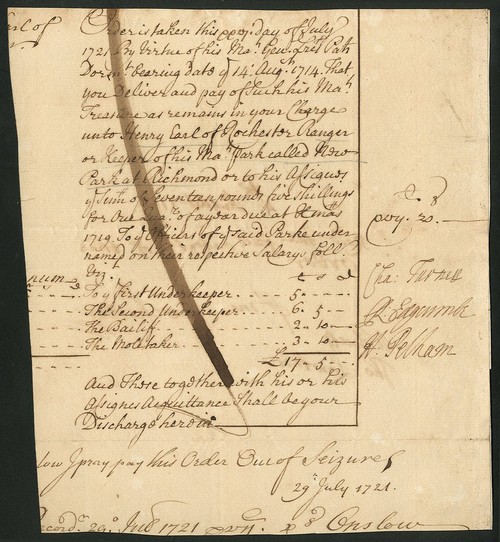 Earl of
Order is taken this xxvj. day of July
1721. By Virtue of his Ma.ts Gen.ll Lres Pat.
Dorm.t bearing date ye 14: Aug.t 1714. That
you Deliver and pay of Such his Ma.ts
Treasure as remains in your Charge
unto Henry Earl of Rochester Ranger
or Keeper of his Ma.ts Park called New
Park at Richmond or to his Assignes
ye Sum of Seventeen pounds five Shillings
for One qua. of a year due at Xmas
1719. To ye Officers of ye said Parke under
named on their respective Salarys foll.
viz.
£ s d
To ye First Underkeeper . . 5 - - -
The Second Underkeeper . . 6 . 5 - -
The Bailif . . . 2 - 10 -
The Moletaker . . . 3 - 10 -
£ 17 - 5 - -
And These together with his or his
Assignes Acquittance Shall be your
Discharge herein
xxvj. 20.
Cha: Turner
R. Edgcumbe
H. Pelham
I pray pay this Order Out of Seizures
29 July 1721.
Record. 29.o July 1721
Onslow